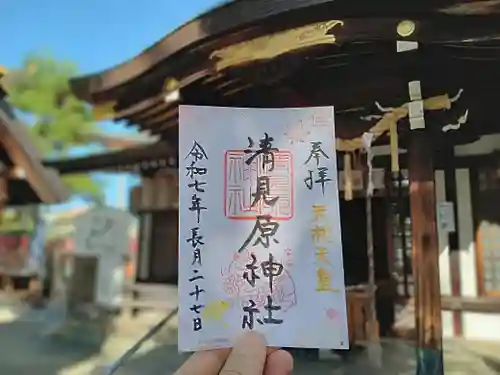 奉拝
天机天皇
清見原神社
令和七年長月二十七日